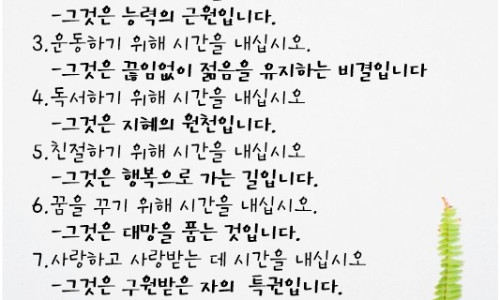 -그것은 능력의 근원입니다.
3.운동하기 위해 시간을 내십시오.
-그것은 끊임없이 젊음을 유지하는 비결입니다
4.독서하기 위해 시간을 내십시오
-그것은 지혜의 원천입니다.
5.친절하기 위해 시간을 내십시오
-그것은 행복으로 가는 길입니다.
6.꿈을 꾸기 위해 시간을 내십시오.
-그것은 대망을 품는 것입니다.
7.사랑하고 사랑받는 데 시간을 내십시오
-그것은 구원받은 자의 특권입니다.